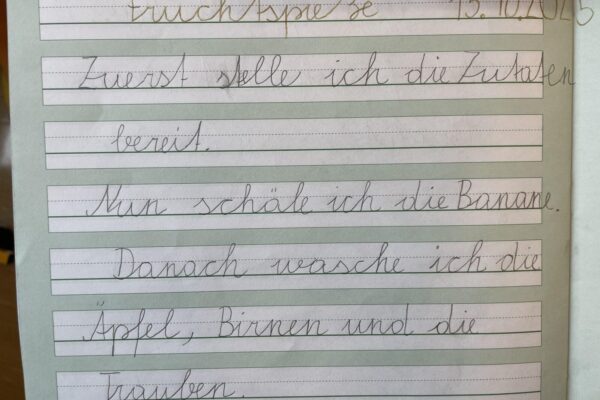 Fruchtspieße 15.10.2025
Zuerst stelle ich die Zutaten
bereit.
Nun schäle ich die Banane.
Danach wasche ich die
Äpfel, Birnen und die
Trauben.